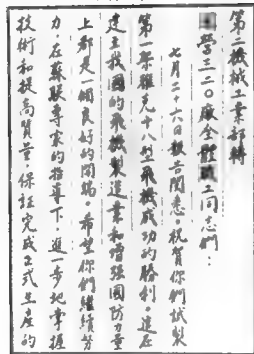 第二机械工業部轉
營三二〇廠全體職工同志們：
七月二十六日报告閱悉。祝賀你們試製
第一架雅克十八型飛機成功的勝利。這在
建立我國的飛機製造業和增强國防力量
上都是一個良好的開端。希望你們繼續努
力，在蘇联專家的指導下，進一步地掌握
技術和提高質量，保証完成正式生産的